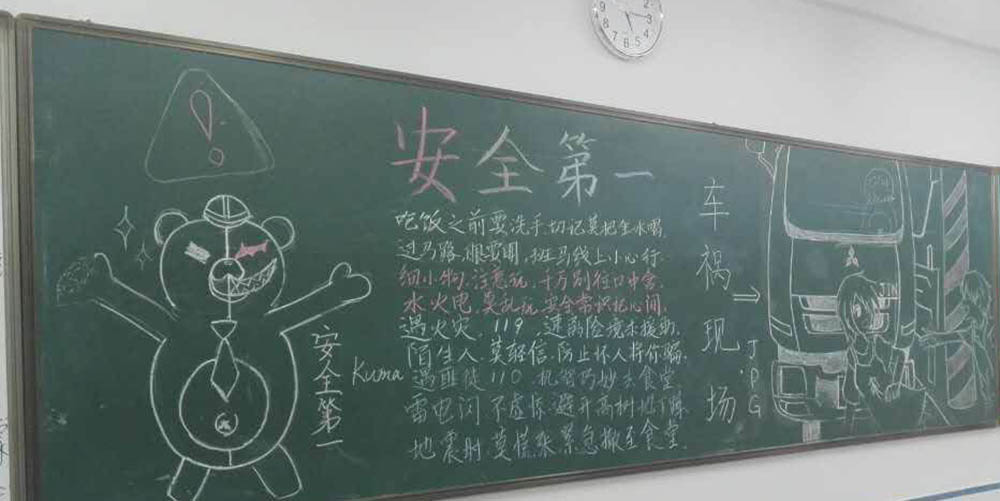 安全第一
吃饭之前要洗手,切记莫把生水喝.
过马路,眼要明,班马线上小心行.
细小物,注意玩,千万别往口中含,
水火电,莫乱玩,安全常识记心间.
遇火灾,119,速离险境求援助.
陌生人,莫轻信,防止坏人将你骗.
遇匪徒110,机智巧妙去食堂
雷电闪 不 避开高树
地震时,莫慌张,紧急撤至食堂.
安全第一
Kuma
车祸现场
J.P.G